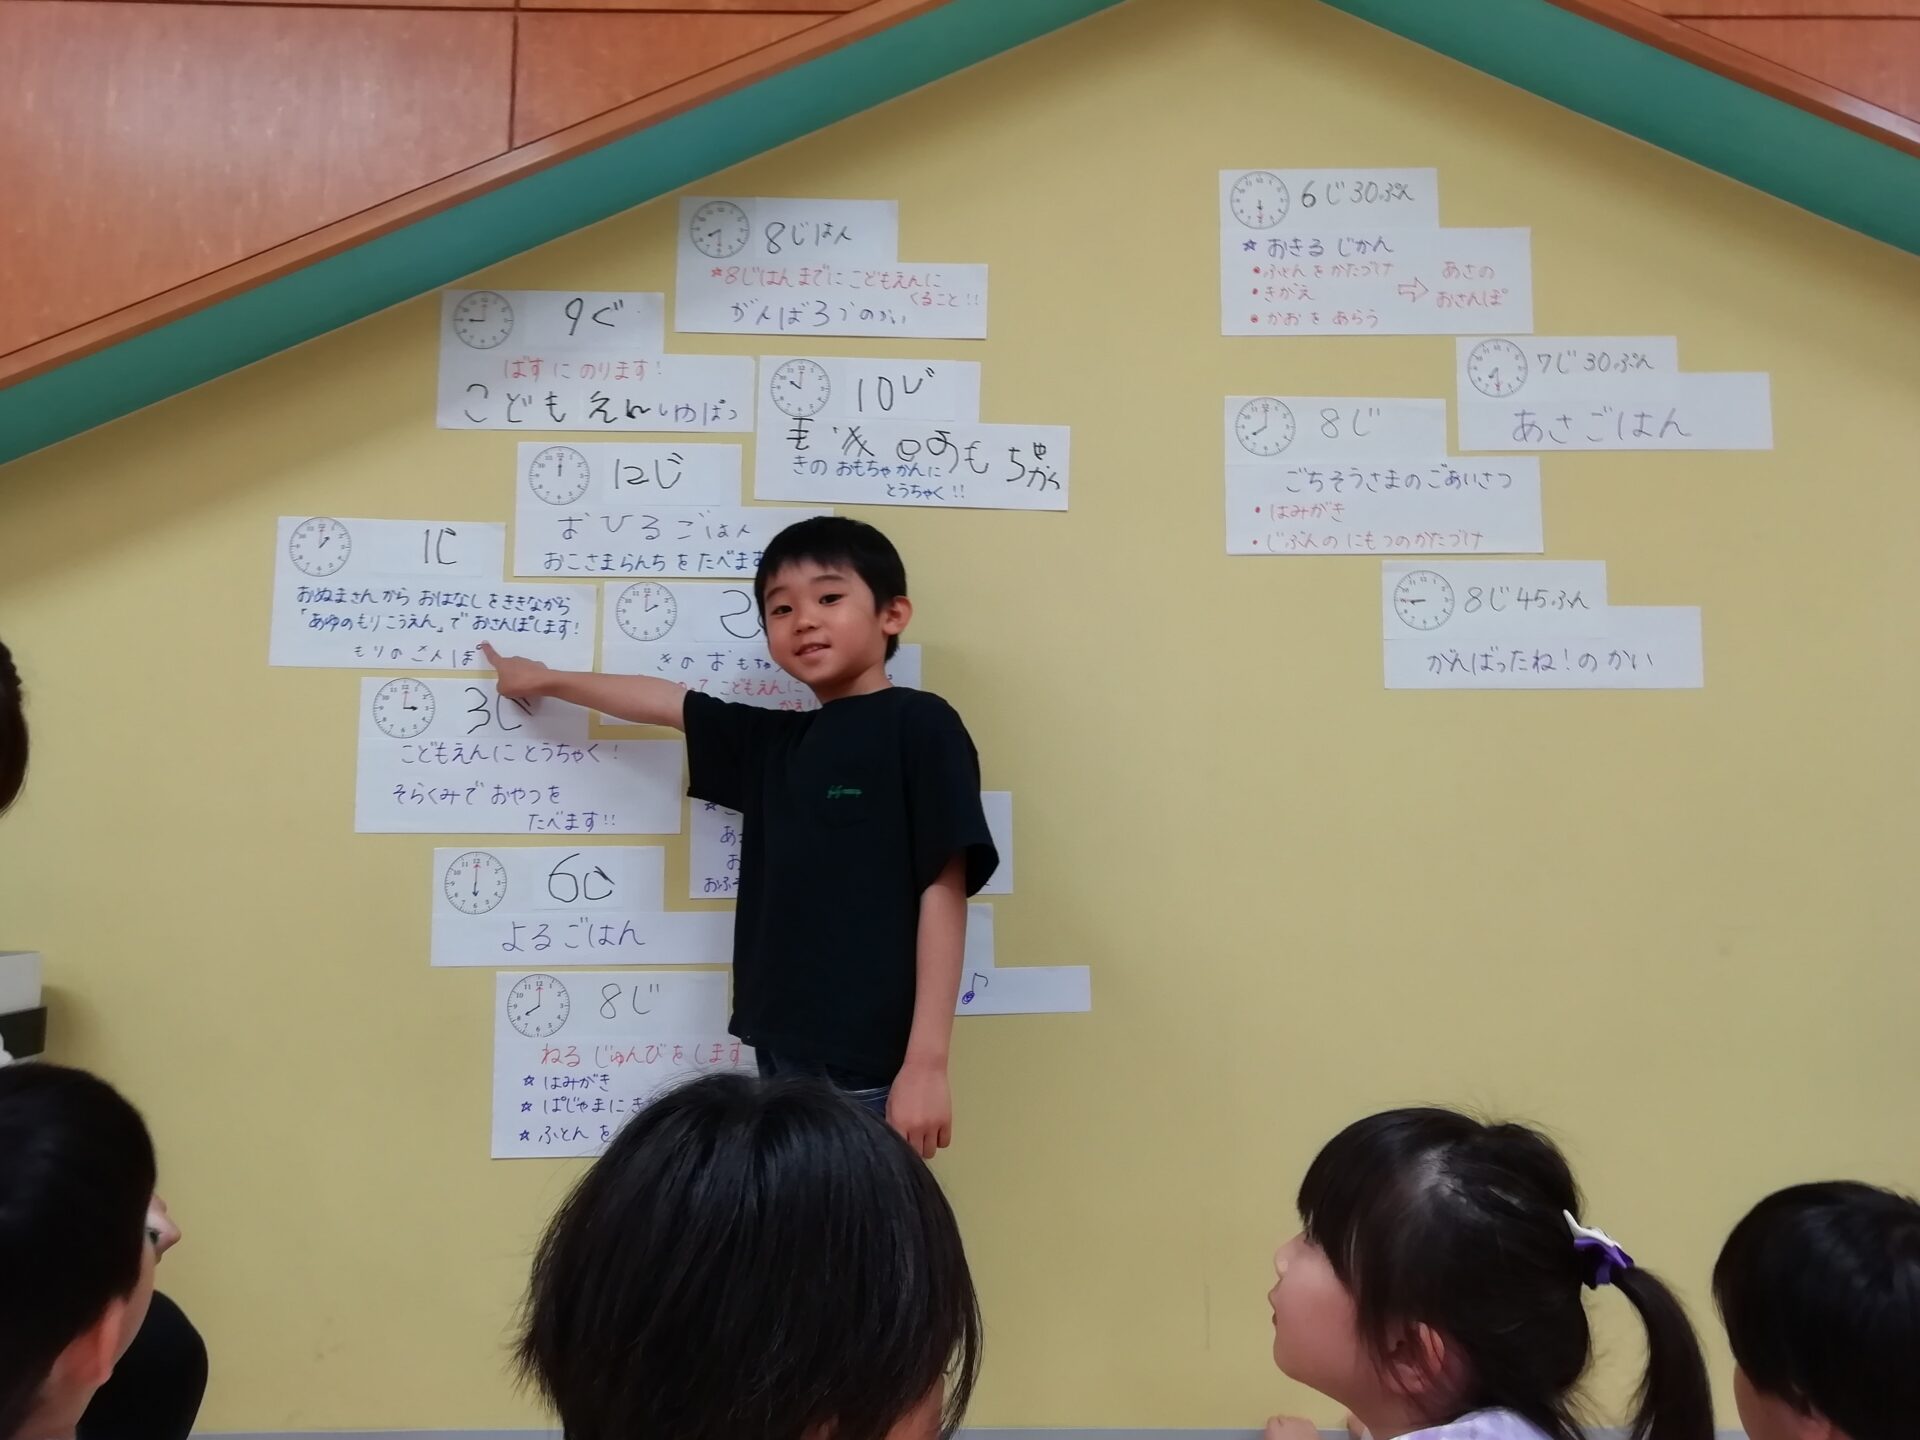 8じはん
*8じはんまでにこどもえんに
くること!!
がんばろうのかい
9じ
ばすにのります!
こどもえんしゅぱつ
10じ
きのおもちゃかんに
とうちゃく!!
12じ
おひるごはん
おこさまらんちをたべます
1じ
おぬまさんからおはなしをききながら
「あゆのもりこうえん」でおさんぽします!
もりのさんぽ
2
きのおもちゃ
って こどもえんに
かえり
3じ
こどもえんにとうちゃく!
そらくみでおやつを
たべます!!
6じ
よるごはん
8じ
ねるじゅんびをします
☆はみがき
☆ぱじゃまにき
☆ふとんを
6じ30ぷん
☆おきるじかん
・ふとんをかたづけ
・きがえ
・かおをあらう
⇨ あさの
おさんぽ
7じ30ぷん
あさごはん
8じ
ごちそうさまのごあいさつ
・はみがき
・じぶんのにもつのかたづけ
8じ45ふん
がんばったね!のかい